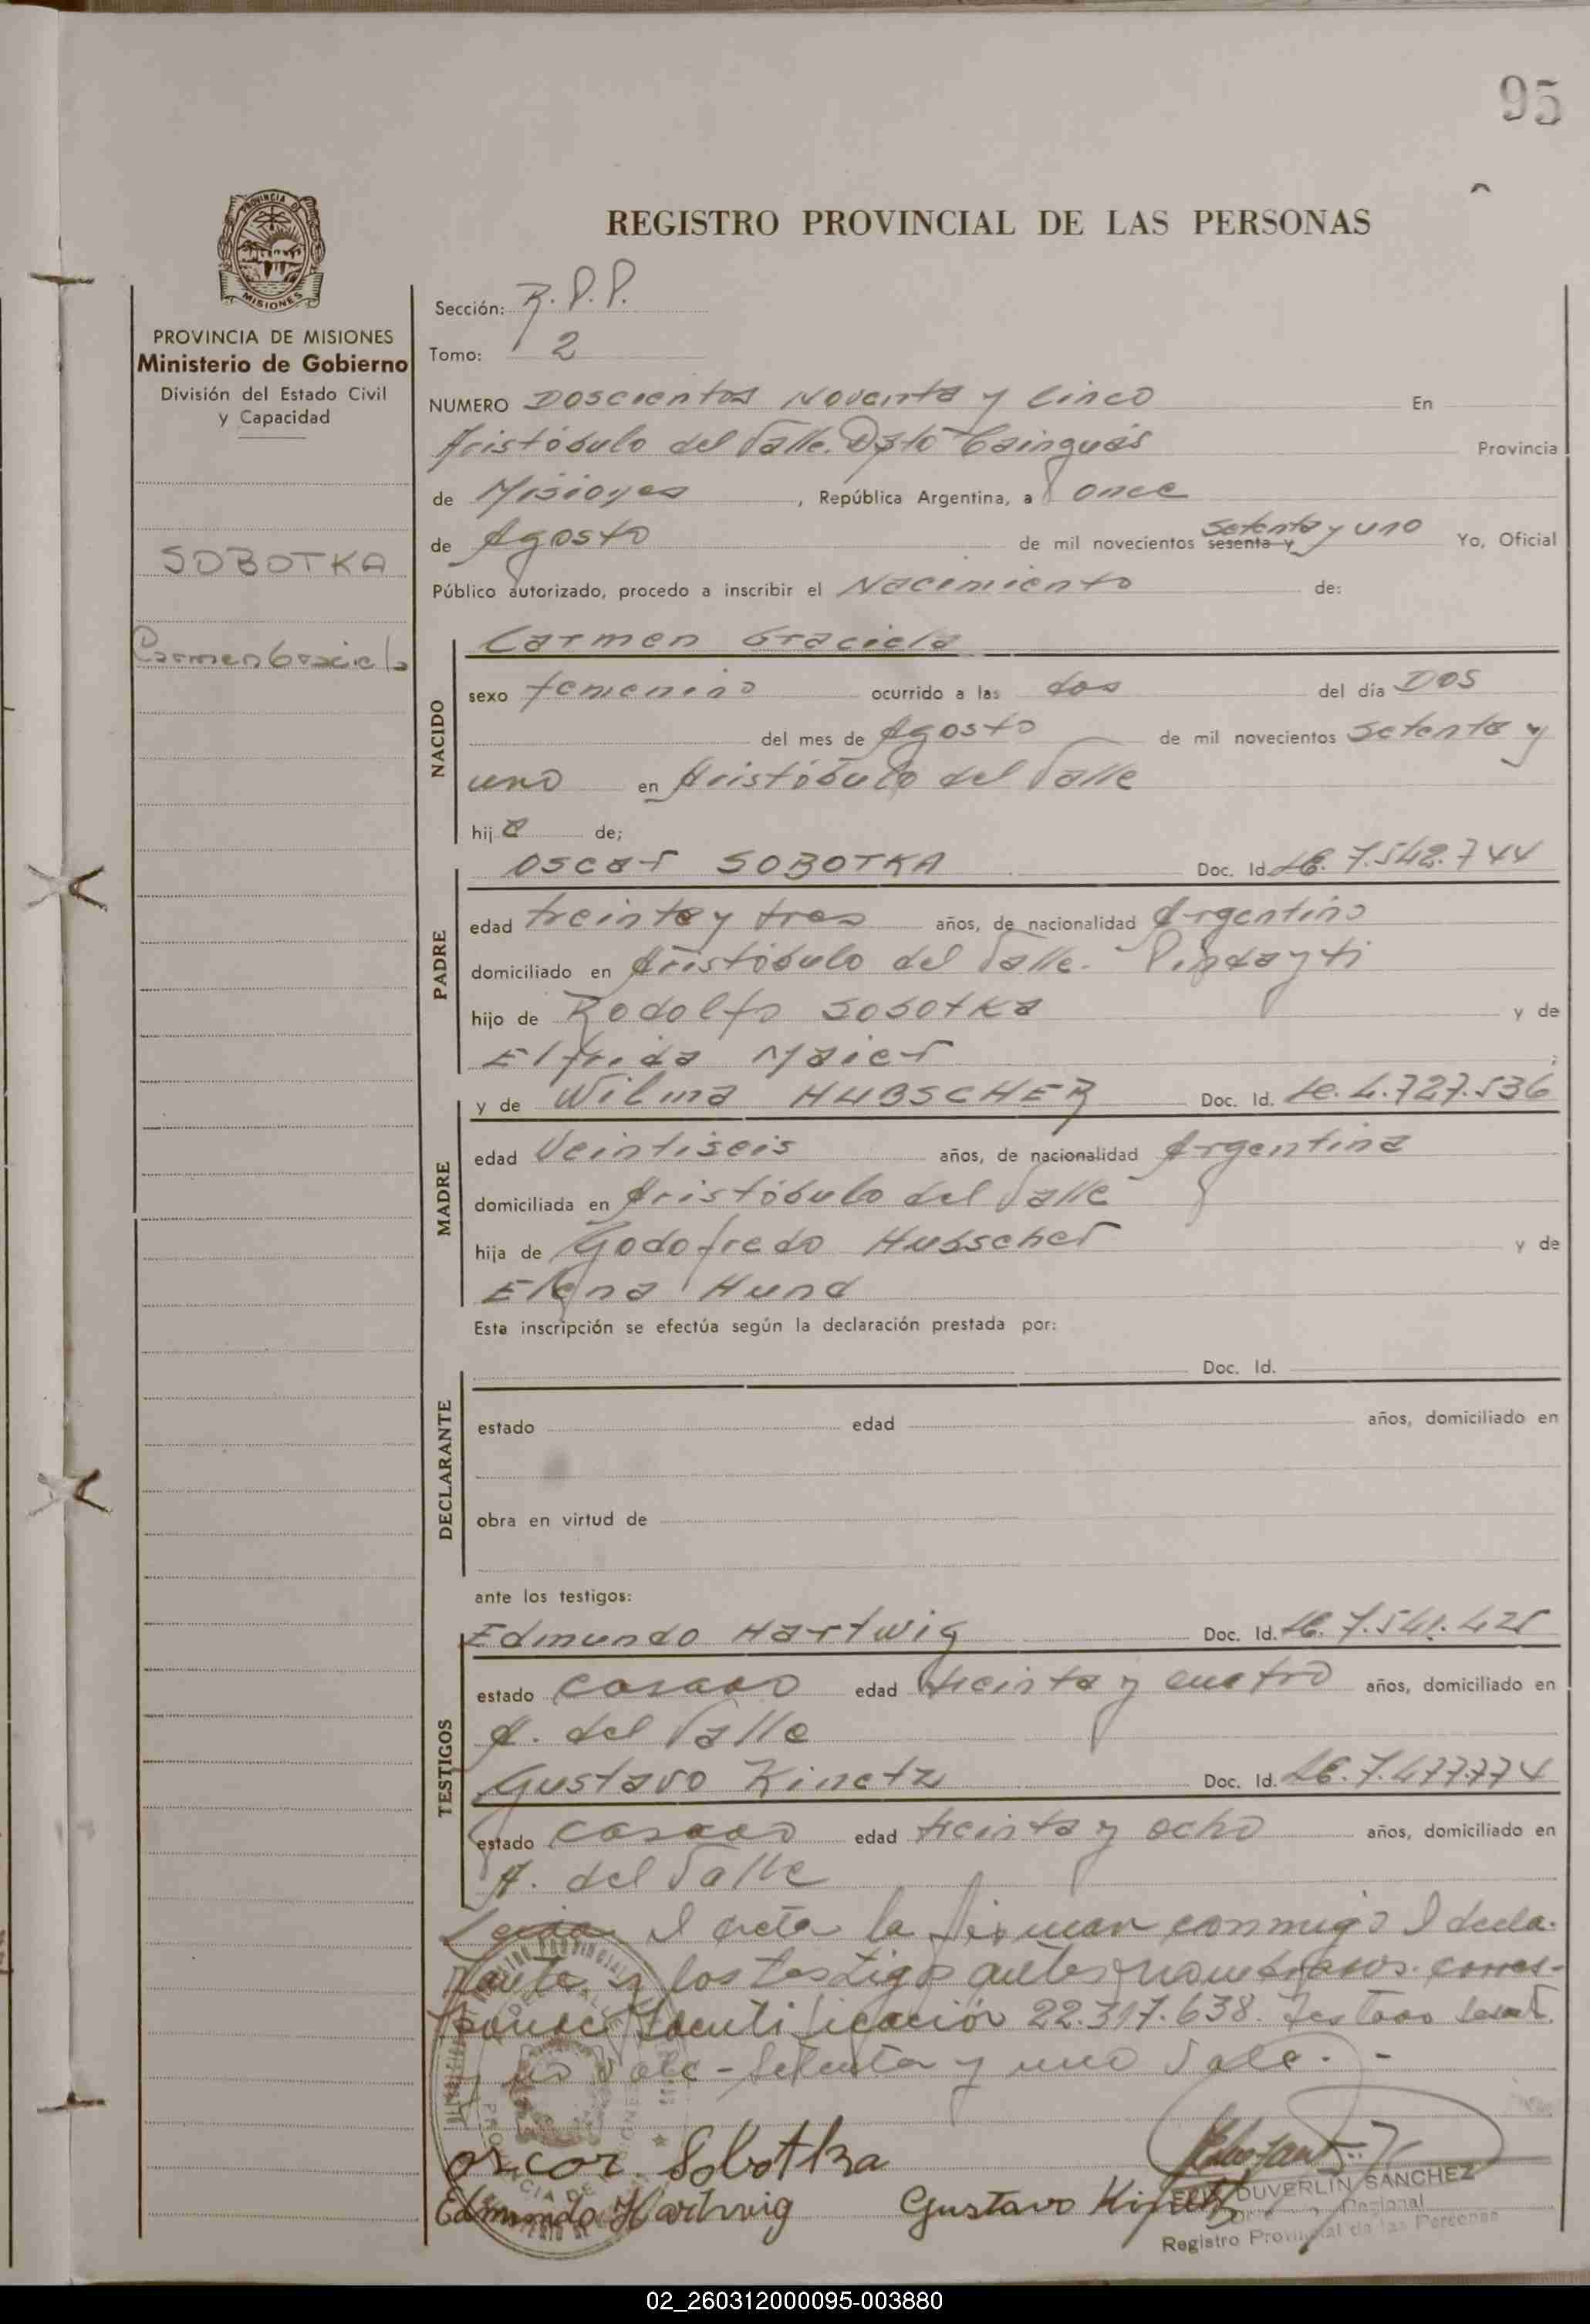 95
REGISTRO PROVINCIAL DE LAS PERSONAS
PROVINCIA DE
MISIONES
PROVINCIA DE MISIONES
Ministerio de Gobierno
División del Estado Civil
y Capacidad
SOBOTKA
Carmen Graciela
Sección: R.P.P.
Tomo: 2
NUMERO Doscientos Noventa y Cinco En
Aristóbulo del Valle. Dpto Cainguás Provincia
de Misiones, República Argentina, a once
de Agosto de mil novecientos sesenta y setenta y uno Yo, Oficial
Público autorizado, procedo a inscribir el Nacimiento de:
NACIDO
Carmen Graciela
sexo femenino ocurrido a las dos del día Dos
del mes de Agosto de mil novecientos setenta y
uno en Aristóbulo del Valle
hija de;
PADRE
Oscar SOBOTKA Doc. Id. LE. 7.542.744
edad treinta y tres años, de nacionalidad Argentino
domiciliado en Aristóbulo del Valle. Pindayti
hijo de Rodolfo Sobotka y de
Elfrida Maier ;
MADRE
y de Wilma HUBSCHER Doc. Id. Lc. 4.727.536
edad Veintiseis años, de nacionalidad Argentina
domiciliada en Aristóbulo del Valle
hija de Godofredo Hubscher y de
Elena Hund
Esta inscripción se efectúa según la declaración prestada por:
DECLARANTE
Doc. Id.
estado edad años, domiciliado en
obra en virtud de
ante los testigos:
TESTIGOS
Edmundo Hartwig Doc. Id. LE. 7.541.425
estado casado edad treinta y cuatro años, domiciliado en
A. del Valle
Gustavo Kinetz Doc. Id. LE. 7.477.774
estado casado edad treinta y ocho años, domiciliado en
A. del Valle
Leida el acta la firman conmigo el decla-
rante y los testigos antes nombrados. corres-
ponde Identificación 22.317.638. Testado
no vale - Setenta y uno Vale. -
Oscar. Sobotka
Edmundo Hartwig Gustavo Kinetz
DUVERLIN SANCHEZ
Registro Provincial de las Personas
02_260312000095-003880